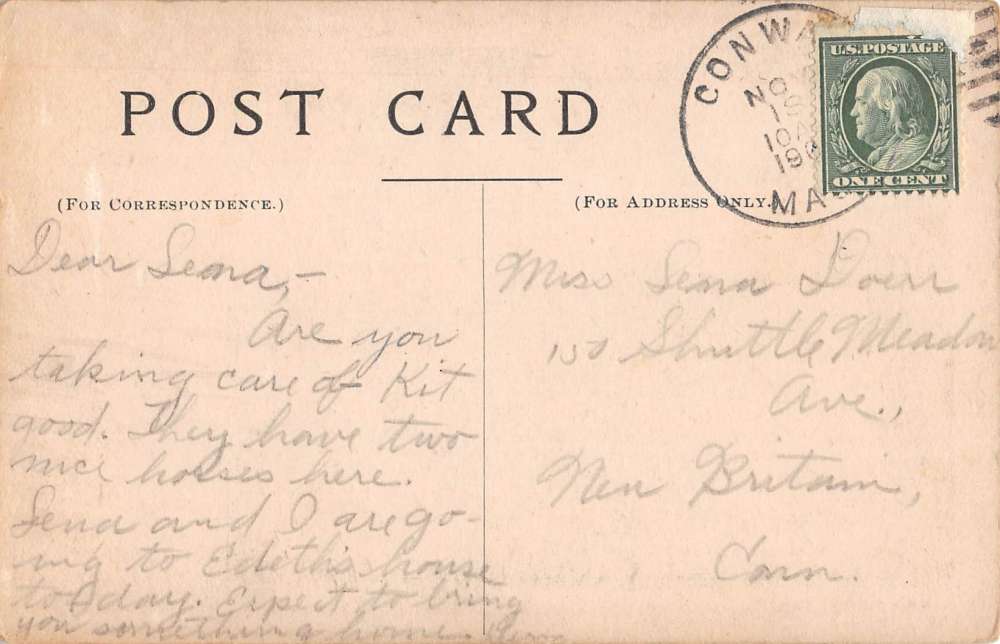 POST CARD
(FOR CORRESPONDENCE.)
(FOR ADDRESS ONLY.)
CONWA
NO
1
10A
190
MA
U.S. POSTAGE
ONE CENT
Dear Sena,-
Are you
taking care of Kit
good. They have two
nice horses here.
Lena and I are go-
ing to Edith's house
to day. Expect to bring
you something home.
Miss Sena Doerr
150 Shuttle Meadow
Ave.,
New Britain,
Conn.